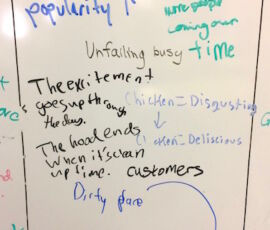 popularity ↑
more people
coming over
Unfailing busy time
The excitement
goes up through
the day.
Chicken = Disgusting
↓
Chicken = Deliscious
The hood ends
when it's clean
up time. customers
Dirty place